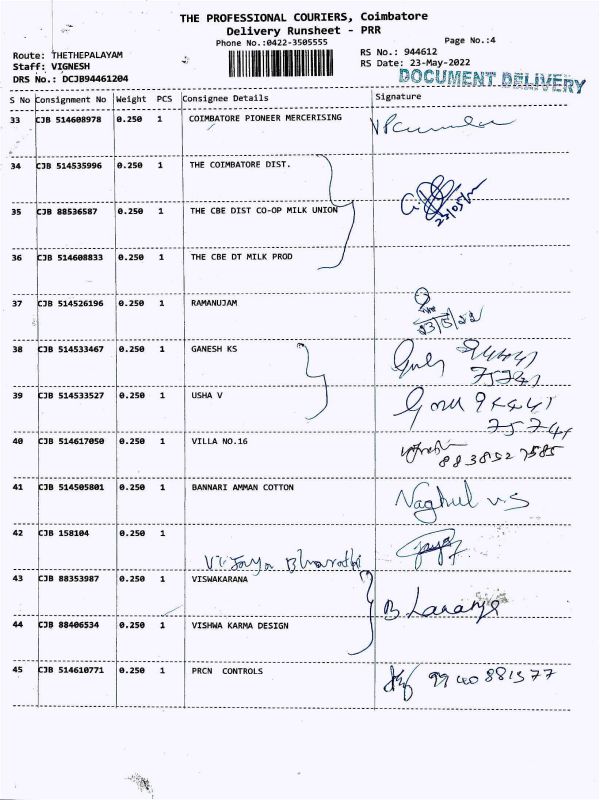 THE PROFESSIONAL COURIERS, Coimbatore
Delivery Runsheet - PRR
Phone No.:0422-3505555
Page No.:4
Route: THETHEPALAYAM
RS No.: 944612
Staff: VIGNESH
RS Date: 23-May-2022
DRS No.: DCJB94461204
DOCUMENT DELIVERY
S No Consignment No Weight PCS Consignee Details Signature
33 CJB 514608978 0.250 1 COIMBATORE PIONEER MERCERISING
34 CJB 514535996 0.250 1 THE COIMBATORE DIST.
35 CJB 88536587 0.250 1 THE CBE DIST CO-OP MILK UNION
36 CJB 514608833 0.250 1 THE CBE DT MILK PROD
37 CJB 514526196 0.250 1 RAMANUJAM
23/5/22
38 CJB 514533467 0.250 1 GANESH KS 94441
75741
39 CJB 514533527 0.250 1 USHA V 94441
75741
40 CJB 514617050 0.250 1 VILLA NO.16
8838527585
41 CJB 514505801 0.250 1 BANNARI AMMAN COTTON Naghul V S
42 CJB 158104 0.250 1
Vijaya Bharathi
43 CJB 88353987 0.250 1 VISWAKARANA
B Lavanya
44 CJB 88406534 0.250 1 VISHWA KARMA DESIGN
45 CJB 514610771 0.250 1 PRCN CONTROLS 9940881377